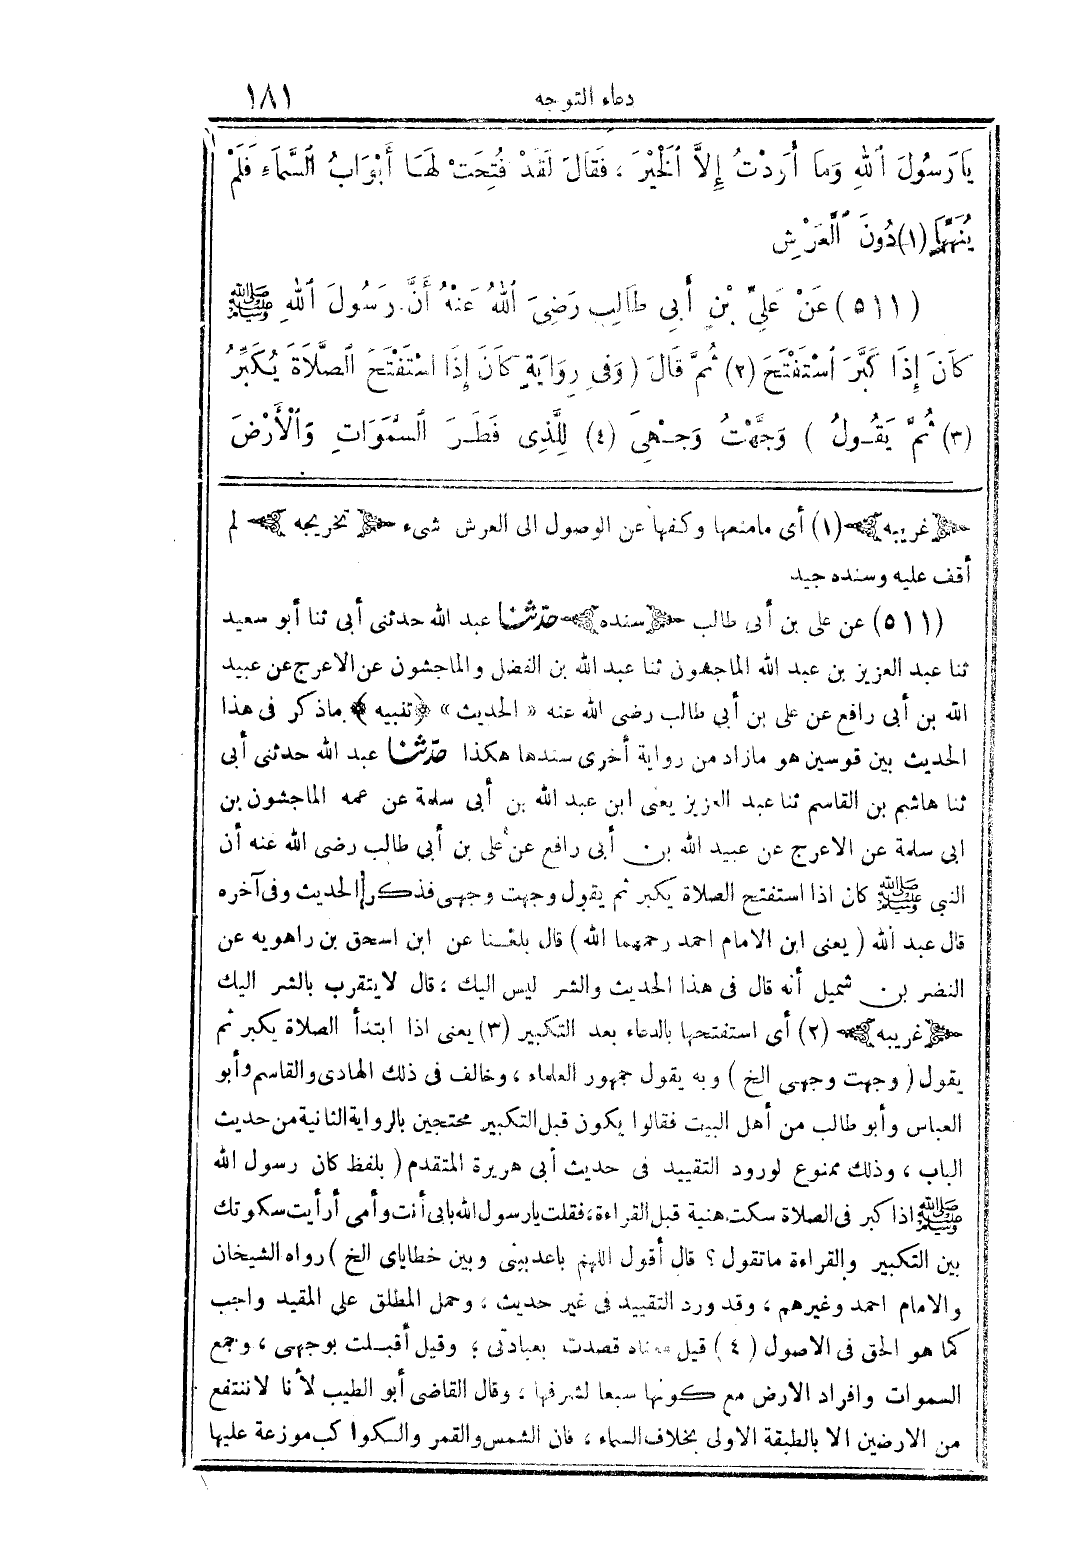 دعاء التوجه ١٨١
يَارَسُولَ ٱللهِ وَمَا أَرَدْتُ إِلَّا ٱلْخَيْرَ ، فَقَالَ لَقَدْ فُتِحَتْ لَهَا أَبْوَابُ ٱلسَّمَاءِ فَلَمْ
يُنَهْنِهَا (١) دُونَ ٱلْعَرْشِ
(٥١١) عَنْ عَلِيِّ بْنِ أَبِي طَالِبٍ رَضِيَ ٱللهُ عَنْهُ أَنَّ رَسُولَ ٱللهِ ﷺ
كَانَ إِذَا كَبَّرَ ٱسْتَفْتَحَ (٢) ثُمَّ قَالَ (وَفِي رِوَايَةٍ كَانَ إِذَا ٱسْتَفْتَحَ ٱلصَّلَاةَ يُكَبِّرُ
(٣) ثُمَّ يَقُولُ ) وَجَّهْتُ وَجْهِيَ (٤) لِلَّذِي فَطَرَ ٱلسَّمَوَاتِ وَٱلْأَرْضَ
﴿غريبه﴾ (١) أى مامنعها وكفها عن الوصول الى العرش شىء ﴿تخريجه﴾ لم
أقف عليه وسنده جيد
(٥١١) عن على بن أبى طالب ﴿سنده﴾ حدّثنا عبد الله حدثنى أبى ثنا أبو سعيد
ثنا عبد العزيز بن عبد الله الماجشون ثنا عبد الله بن الفضل والماجشون عن الاعرج عن عبيد
الله بن أبى رافع عن على بن أبى طالب رضى الله عنه « الحديث » ﴿تنبيه﴾ ماذكر فى هذا
الحديث بين قوسين هو مازاد من رواية أخرى سندها هكذا حدّثنا عبد الله حدثنى أبى
ثنا هاشم بن القاسم ثنا عبد العزيز يعنى ابن عبد الله بن أبى سلمة عن عمه الماجشون بن
ابى سلمة عن الاعرج عن عبيد الله بن أبى رافع عن على بن أبى طالب رضى الله عنه أن
النبى ﷺ كان اذا استفتح الصلاة يكبر ثم يقول وجهت وجهى فذكر الحديث وفى آخره
قال عبد الله ( يعنى ابن الامام احمد رحمهما الله ) قال بلغنا عن ابن اسحق بن راهويه عن
النضر بن شميل أنه قال فى هذا الحديث والشر ليس اليك ، قال لايتقرب بالشر اليك
﴿غريبه﴾ (٢) أى استفتحها بالدعاء بعد التكبير (٣) يعنى اذا ابتدأ الصلاة يكبر ثم
يقول ( وجهت وجهى الخ ) وبه يقول جمهور العلماء ، وخالف فى ذلك الهادى والقاسم وأبو
العباس وأبو طالب من أهل البيت فقالوا يكون قبل التكبير محتجين بالرواية الثانية من حديث
الباب ، وذلك ممنوع لورود التقييد فى حديث أبى هريرة المتقدم ( بلفظ كان رسول الله
ﷺ اذا كبر فى الصلاة سكت هنية قبل القراءة ، فقلت يارسول الله بابى أنت وأمى أرأيت سكوتك
بين التكبير والقراءة ماتقول ؟ قال أقول اللهم باعد بينى وبين خطاياى الخ ) رواه الشيخان
والامام احمد وغيرهم ، وقد ورد التقييد فى غير حديث ، وحمل المطلق على المقيد واجب
كما هو الحق فى الاصول ( ٤ ) قيل معناه قصدت بعبادتى ؛ وقيل أقبلت بوجهى ، وجمع
السموات وافراد الارض مع كونها سبعا لشرفها ، وقال القاضى أبو الطيب لأنا لاننتفع
من الارضين الا بالطبقة الاولى بخلاف السماء ، فان الشمس والقمر والكواكب موزعة عليها